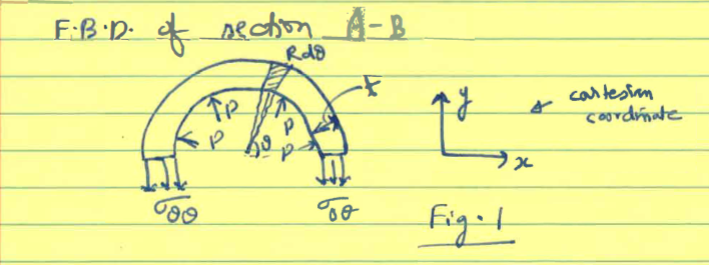 F.B.D. of section A-B
Rdθ
t
P
P
P
P
θ
y
x
cartesian
coordinate
σθθ
σθθ
Fig. 1